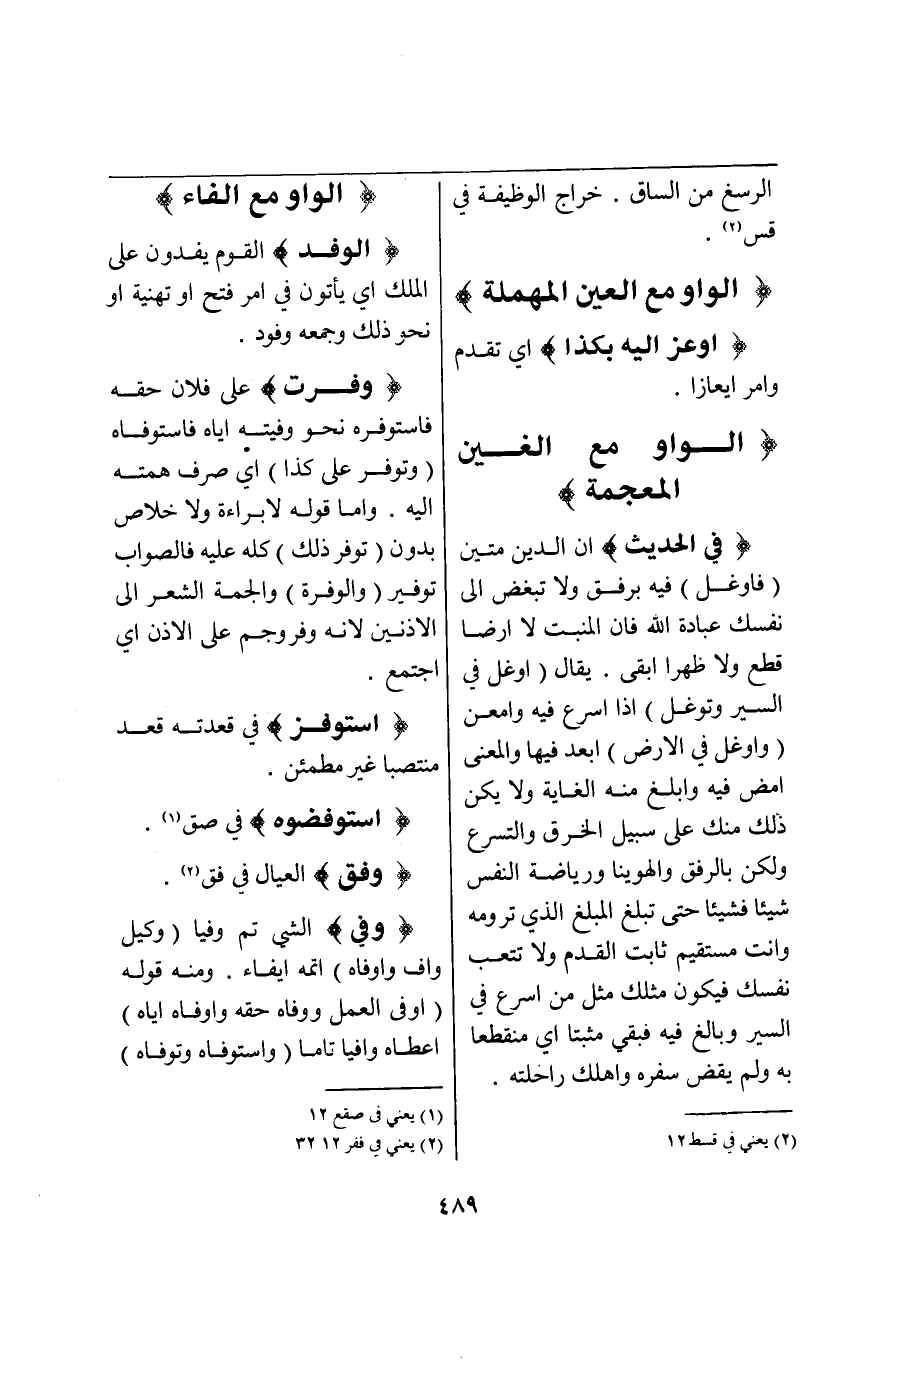 الرسغ من الساق . خراج الوظيفة في
قس(٢) .
﴿ الواو مع العين المهملة ﴾
﴿ اوعز اليه بكذا ﴾ اي تقدم
وامر ايعازا .
﴿ الواو مع الغين
المعجمة ﴾
﴿ في الحديث ﴾ ان الدين متين
( فاوغل ) فيه برفق ولا تبغض الى
نفسك عبادة الله فان المنبت لا ارضا
قطع ولا ظهرا ابقى . يقال ( اوغل في
السير وتوغل ) اذا اسرع فيه وامعن
( واوغل في الارض ) ابعد فيها والمعنى
امض فيه وابلغ منه الغاية ولا يكن
ذلك منك على سبيل الخرق والتسرع
ولكن بالرفق والهوينا ورياضة النفس
شيئا فشيئا حتى تبلغ المبلغ الذي ترومه
وانت مستقيم ثابت القدم ولا تتعب
نفسك فيكون مثلك مثل من اسرع في
السير وبالغ فيه فبقي مثبتا اي منقطعا
به ولم يقض سفره واهلك راحلته .
(٢) يعني في قسط ١٢
﴿ الواو مع الفاء ﴾
﴿ الوفد ﴾ القوم يفدون على
الملك اي يأتون في امر فتح او تهنية او
نحو ذلك وجمعه وفود .
﴿ وفرت ﴾ على فلان حقه
فاستوفره نحو وفيته اياه فاستوفاه
( وتوفر على كذا ) اي صرف همته
اليه . واما قوله لا براءة ولا خلاص
بدون ( توفر ذلك ) كله عليه فالصواب
توفير ( والوفرة ) والجمة الشعر الى
الاذنين لانه وفر وجم على الاذن اي
اجتمع .
﴿ استوفز ﴾ في قعدته قعد
منتصبا غير مطمئن .
﴿ استوفضوه ﴾ في صق(١) .
﴿ وفق ﴾ العيال في فق(٢) .
﴿ وفى ﴾ الشي تم وفيا ( وكيل
واف واوفاه ) اتمه ايفاء . ومنه قوله
( اوفى العمل ووفاه حقه واوفاه اياه )
اعطاه وافيا تاما ( واستوفاه وتوفاه )
(١) يعني في صقع ١٢
(٢) يعني في فقر ١٢ ٣٢
٤٨٩